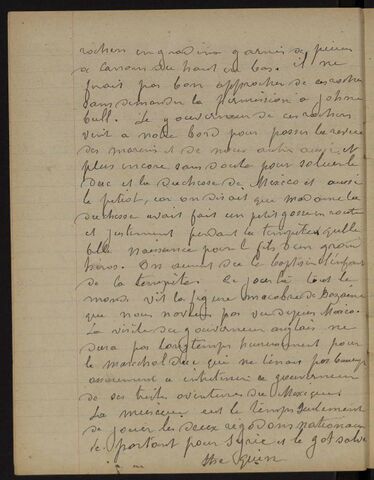 rochers en gradins garnis de pièces
de canons du haut en bas. il ne
ferait pas bon approcher de ces rochers
sans demander la permission à John
bull. Le gouverneur de ces rochers
vint à notre bord pour passer la revue
des marins et de nous autres aussi et
plus encore sans doute pour saluer le
duc et la duchesse de Mexico et aussi
le petiot, car on disait que madame la
duchesse avait fait un petit gosse en route
et justement pendant la tempête qu'elle
naissance pour le fils d'un grand
héros. On aurait dû le baptiser l'enfant
de la tempête. Ce jour là tout le
monde vit la figure macabre de Bazaine
que nous n'avions pas vue depuis Mexico.
La visite du gouverneur anglais ne
dura pas longtemps heureusement pour
le maréchal duc qui ne tenait pas
assurément à entretenir ce gouverneur
de ses tristes aventures du Mexique
La musique eut le temps seulement
de jouer les deux rigodons nationaux
le partant pour Syrie et le got salve
the Quin